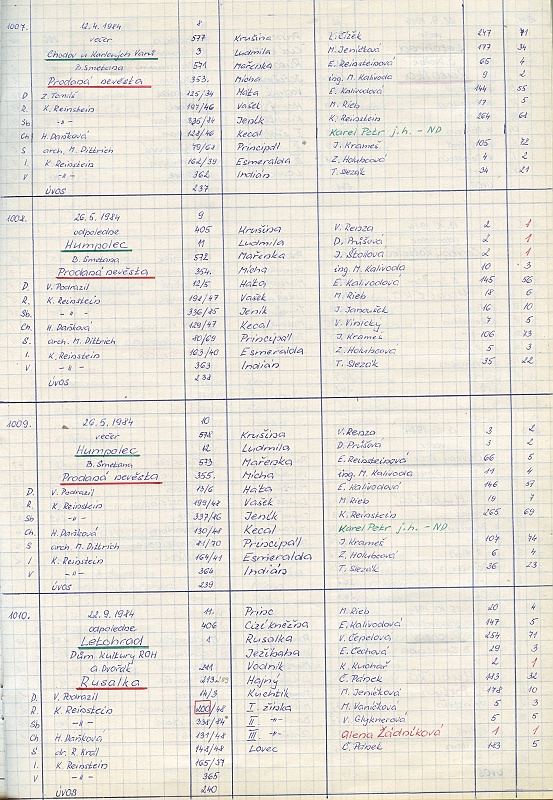 1007. 12.4.1984 8
večer 577 Krušina L. Čížek 247 71
Chodov u Karlových Varů 3 Ludmila M. Jeníčková 177 34
B. Smetana 571 Mařenka E. Reinsteinová 65 4
Prodaná nevěsta 353. Mícha ing. M. Kalivoda 9 2
D Z. Tomáš 125/34 Háta E. Kalivodová 144 55
R. K. Reinstein 197/46 Vašek M. Rieb 17 5
Sb -"- 335/84 Jeník K. Reinstein 264 61
Ch H. Daňková 128/46 Kecal Karel Petr j.h. - ND
S arch. M. Dittrich 79/68 Principál J. Krameš 105 72
I. K. Reinstein 162/39 Esmeralda Z. Holubcová 4 2
V -"- 362 Indián T. Slezák 34 21
ÚVOS 237
1008. 26.5.1984 9
odpoledne 405 Krušina V. Renza 2 1
Humpolec 11 Ludmila D. Průšová 2 1
B. Smetana 572 Mařenka J. Štollová 2 1
Prodaná nevěsta 354. Mícha ing. M. Kalivoda 10 3
D. V. Podrazil 12/5 Háta E. Kalivodová 145 56
R. K. Reinstein 198/47 Vašek M. Rieb 18 6
Sb. -"- 336/85 Jeník J. Janoušek 16 10
Ch. H. Daňková 129/47 Kecal V. Vinický 7 5
S. arch. M. Dittrich 80/69 Principál J. Krameš 106 73
I. K. Reinstein 163/40 Esmeralda Z. Holubcová 5 3
V -"- 363 Indián T. Slezák 35 22
ÚVOS 238
1009. 26.5.1984 10
večer 578 Krušina V. Renza 3 2
Humpolec 12 Ludmila D. Průšova 3 2
B. Smetana 573 Mařenka E. Reinsteinová 66 5
Prodaná nevěsta 355. Mícha ing. M. Kalivoda 11 4
D. V. Podrazil 13/6 Háta E. Kalivodová 146 57
R. K. Reinstein 199/48 Vašek M. Rieb 19 7
Sb -"- 337/86 Jeník K. Reinstein 265 69
Ch. H. Daňková 130/48 Kecal Karel Petr j.h. - ND
S arch. M. Dittrich 81/70 Principál J. Krameš 107 74
I K. Reinstein 164/41 Esmeralda Z. Holubcová 6 4
V -"- 364 Indián T. Slezák 36 23
ÚVOS 239
1010. 22.9.1984 11. Princ M. Rieb 20 4
odpoledne 406 Cizí kněžna E. Kalivodová 147 5
Letohrad 1 Rusalka V. Čepelová 254 71
Dům kultury ROH Ježibaba E. Čechová 29 3
A. Dvořák 211 Vodník K. Kuchař 2 1
Rusalka 213 Hajný Č. Pánek 113 32
D. V. Podrazil 14/3 Kuchtík M. Jeníčková 178 10
R. K. Reinstein 200/48 I. žínka M. Vaníčková 5 3
Sb -"- 338/84 II -"- V. Glyknerová 5 5
Ch H. Daňková 131/48 III -"- Alena Žádníková 1 1
S dr. R. Král 148/48 Lovec Č. Pánek 113 5
I. K. Reinstein 165/37
V -"- 365
ÚVOS 240